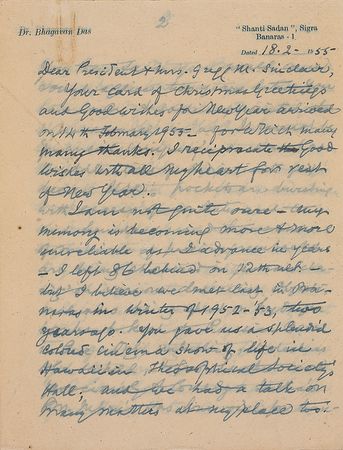 2
Dr. Bhagavan Das
"Shanti Sadan", Sigra
Banaras - 1.
Dated 18.2- 1955-
Dear President & Mrs. Gregg M. Sinclair,
Your card of Christmas Greetings
and Good wishes for New Year arrived
on 14th February 1955- for which many
many thanks. I reciprocate the Good
wishes with all my heart for rest
of New Year.
I am not quite sure - my
memory is becoming more & more
unreliable as I advance in years
- I left 86 behind on 12th ult. -
but I believe we met last in Ba-
naras in winter of 1952-'53, two
years ago. You gave us a splendid
colour cinema show of life in
Hawaii in Theosophical Society's
Hall; and we had a talk on
many matters at my place too.